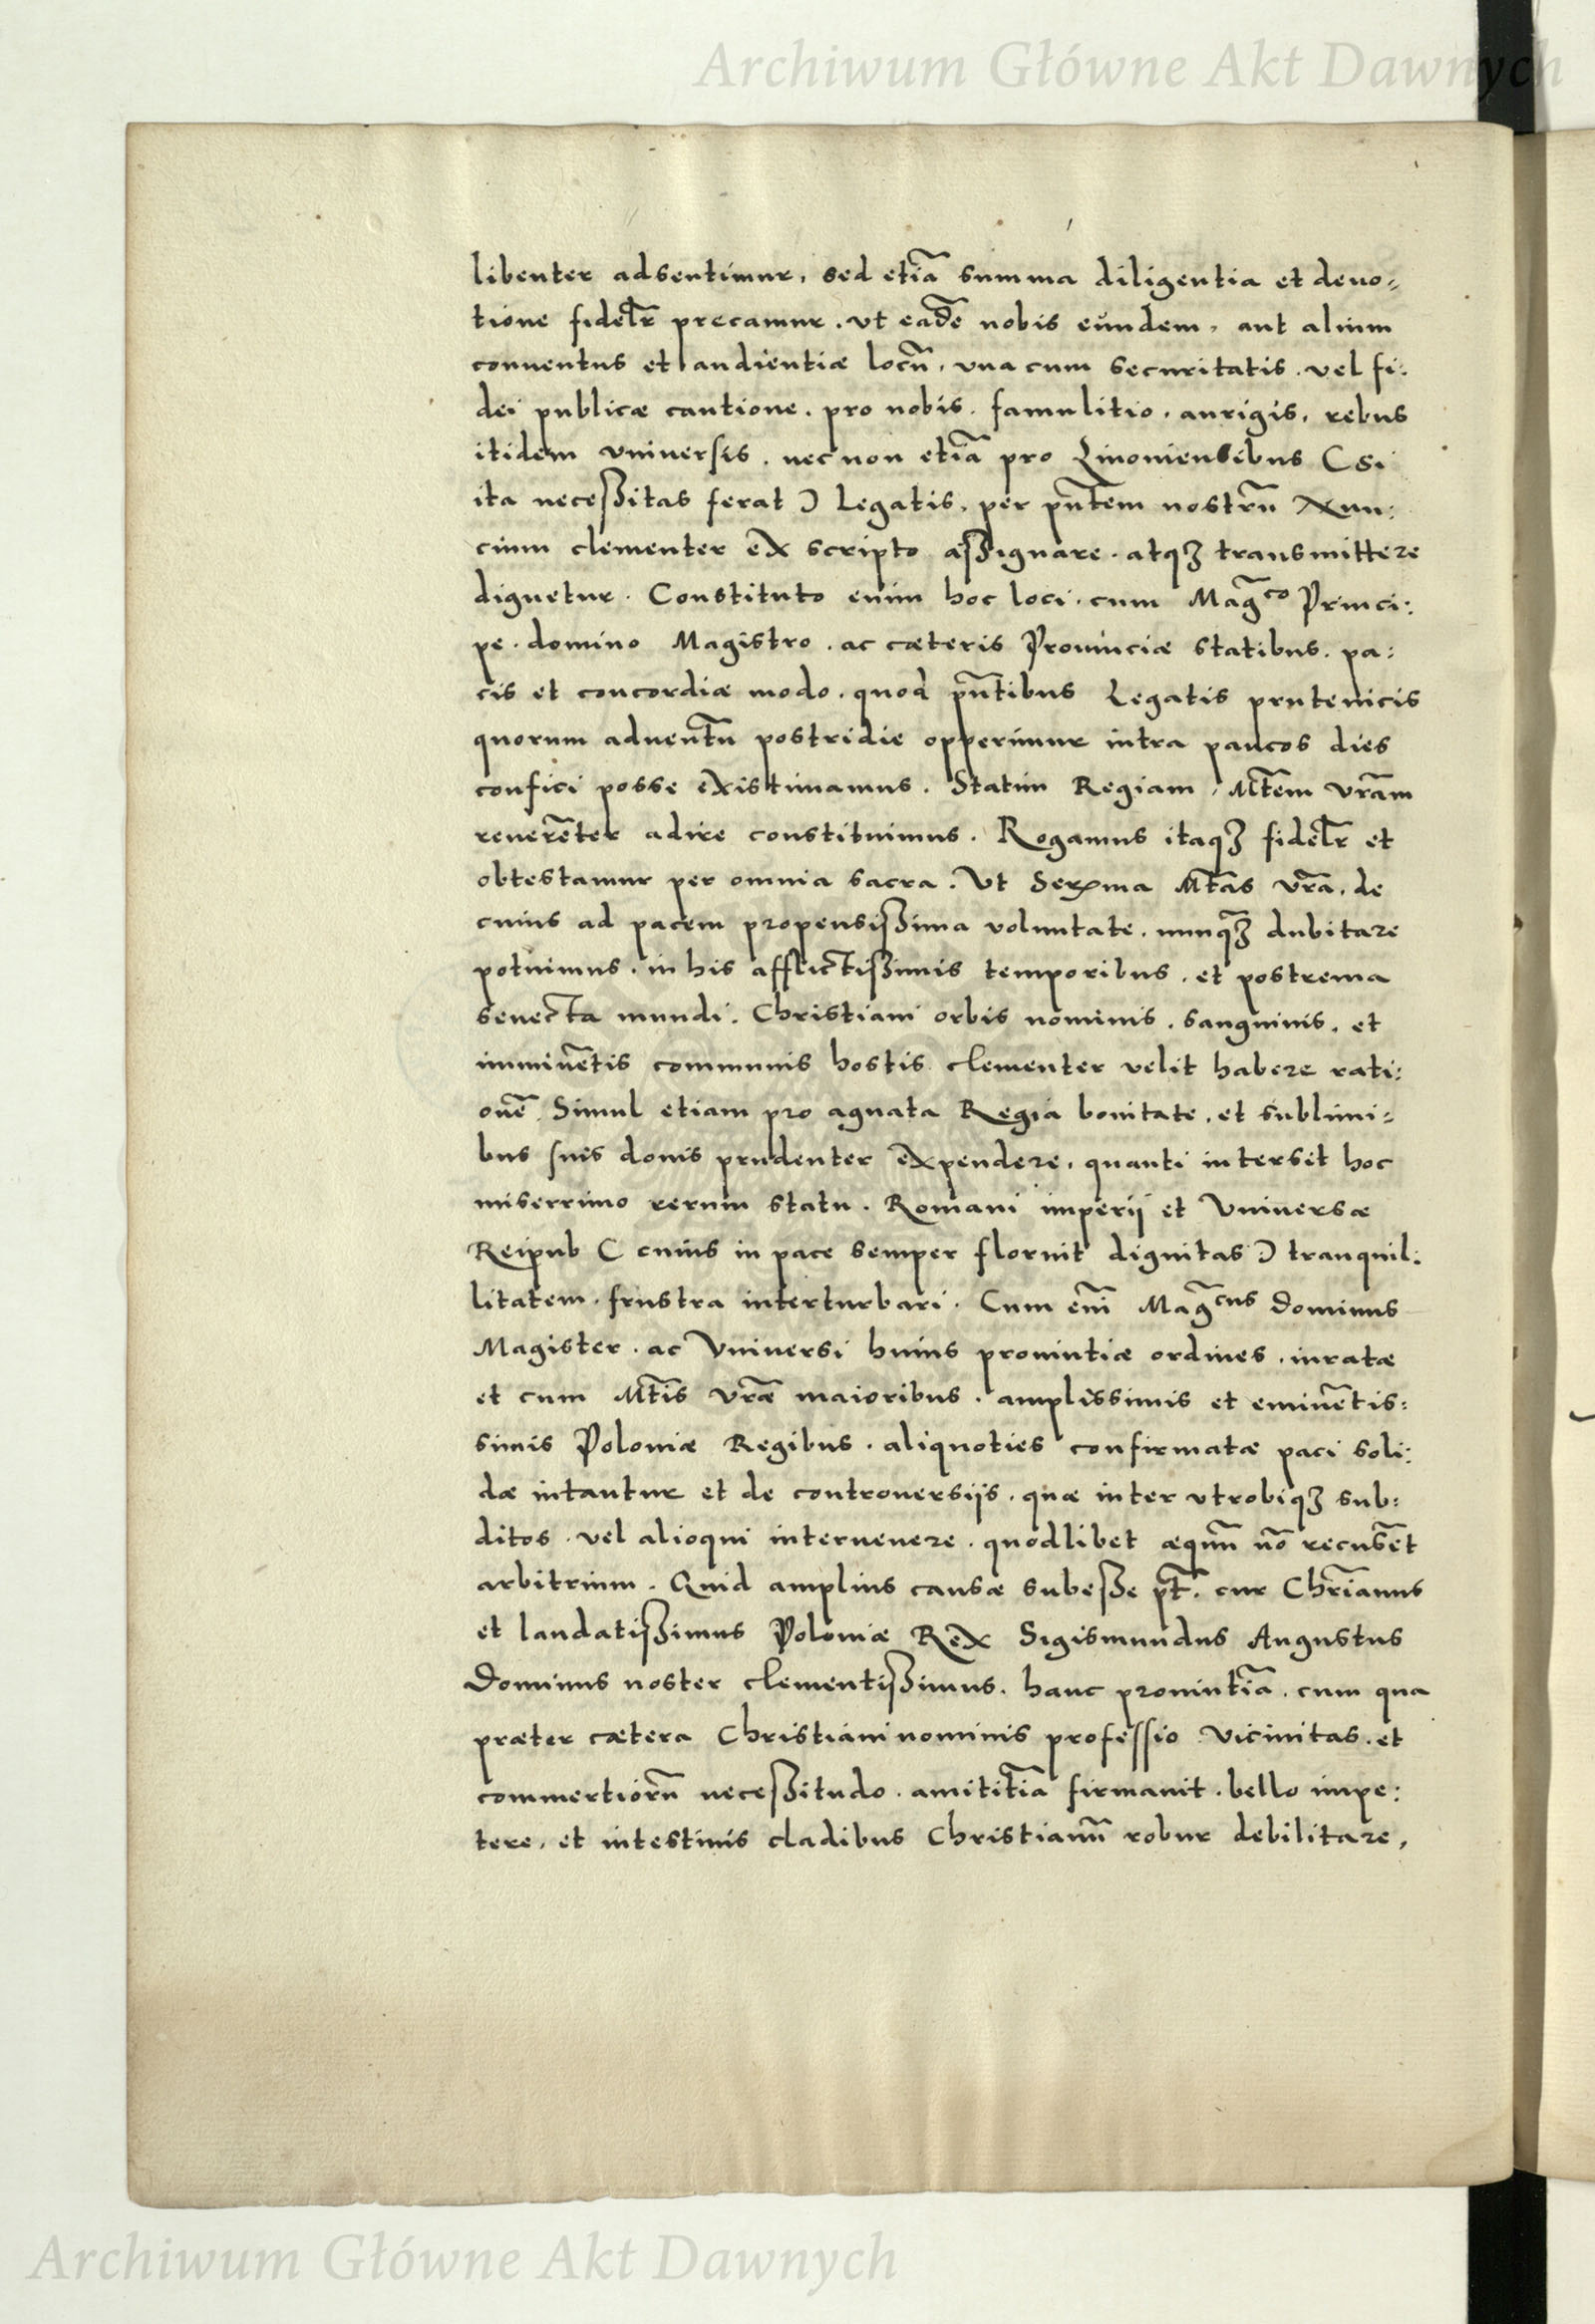 Archiwum Główne Akt Dawnych
libenter adsentimur, sed etiā summa diligentia et deuo-
tione fidelr̄ precamur. vt eadē nobis eŭndem, aut alium
conuentus et audientiæ locū, vna cum securitatis. vel fi:
dei publicæ cautione. pro nobis. famulitio. aurigis, rebus
itidem vniuersis. nec non etiā pro Liuoniensibus (si
ita neceßitas ferat) Legatis, per pn̄tem nostrū Nun:
cium clementer ex scripto aßignare. atqꝫ transmittere
dignetur. Constituto enim hoc loci. cum Mag̃co Princi:
pe. domino Magistro. ac cæteris Prouinciæ statibus. pa:
cis et concordiæ modo. quod pn̄tibus Legatis prutenicis
quorum aduentū postridie opperimur intra paucos dies
confici posse existimamus. Statim Regiam Mt̄em Vr̄am
reuerēter adire constituimus. Rogamus itaqꝫ fidelr̄ et
obtestamur per omnia sacra. Vt Serma Mt̄as vr̄a, de
cuius ad pacem propensißima voluntate. nunq̄ꝫ dubitare
potuimus. in his afflictißimis temporibus. et postrema
senecta mundi. Christiani orbis nominis. sanguinis. et
imminētis communis hostis clementer velit habere rati:
onē. Simul etiam pro agnata Regia bonitate, et sublimi-
bus suis donis prudenter expendere, quanti intersit hoc
miserrimo rerum statu. Romani imperij et Vniuersæ
Reipub (cuius in pace semper floruit dignitas) tranquil:
litatem. frustra interturbari. Cum eni̅ Mag̃cus dominus
Magister. ac Vniuersi huius prouintiæ ordines. iuratæ
et cum Mt̄is vr̄æ maioribus. amplissimis et eminētis:
simis Poloniæ Regibus. aliquoties confirmatæ paci soli:
dæ intantur et de controuersijs. quæ inter vtrobiqꝫ sub:
ditos. vel alioqui interuenere. quodlibet æquū nō recusēt
arbitrium. Quid amplius causæ subeße pt̄. cur Chr̄ianus
et laudatißimus Poloniæ Rex Sigismundus Augustus
Dominus noster clementißimus. hanc prouintiā. cum qua
præter cætera Christiani nominis professio vicinitas. et
commertiorū neceßitudo. amititiā firmauit. bello impe:
tere, et intestinis cladibus Christianū robur debilitare,
Archiwum Główne Akt Dawnych